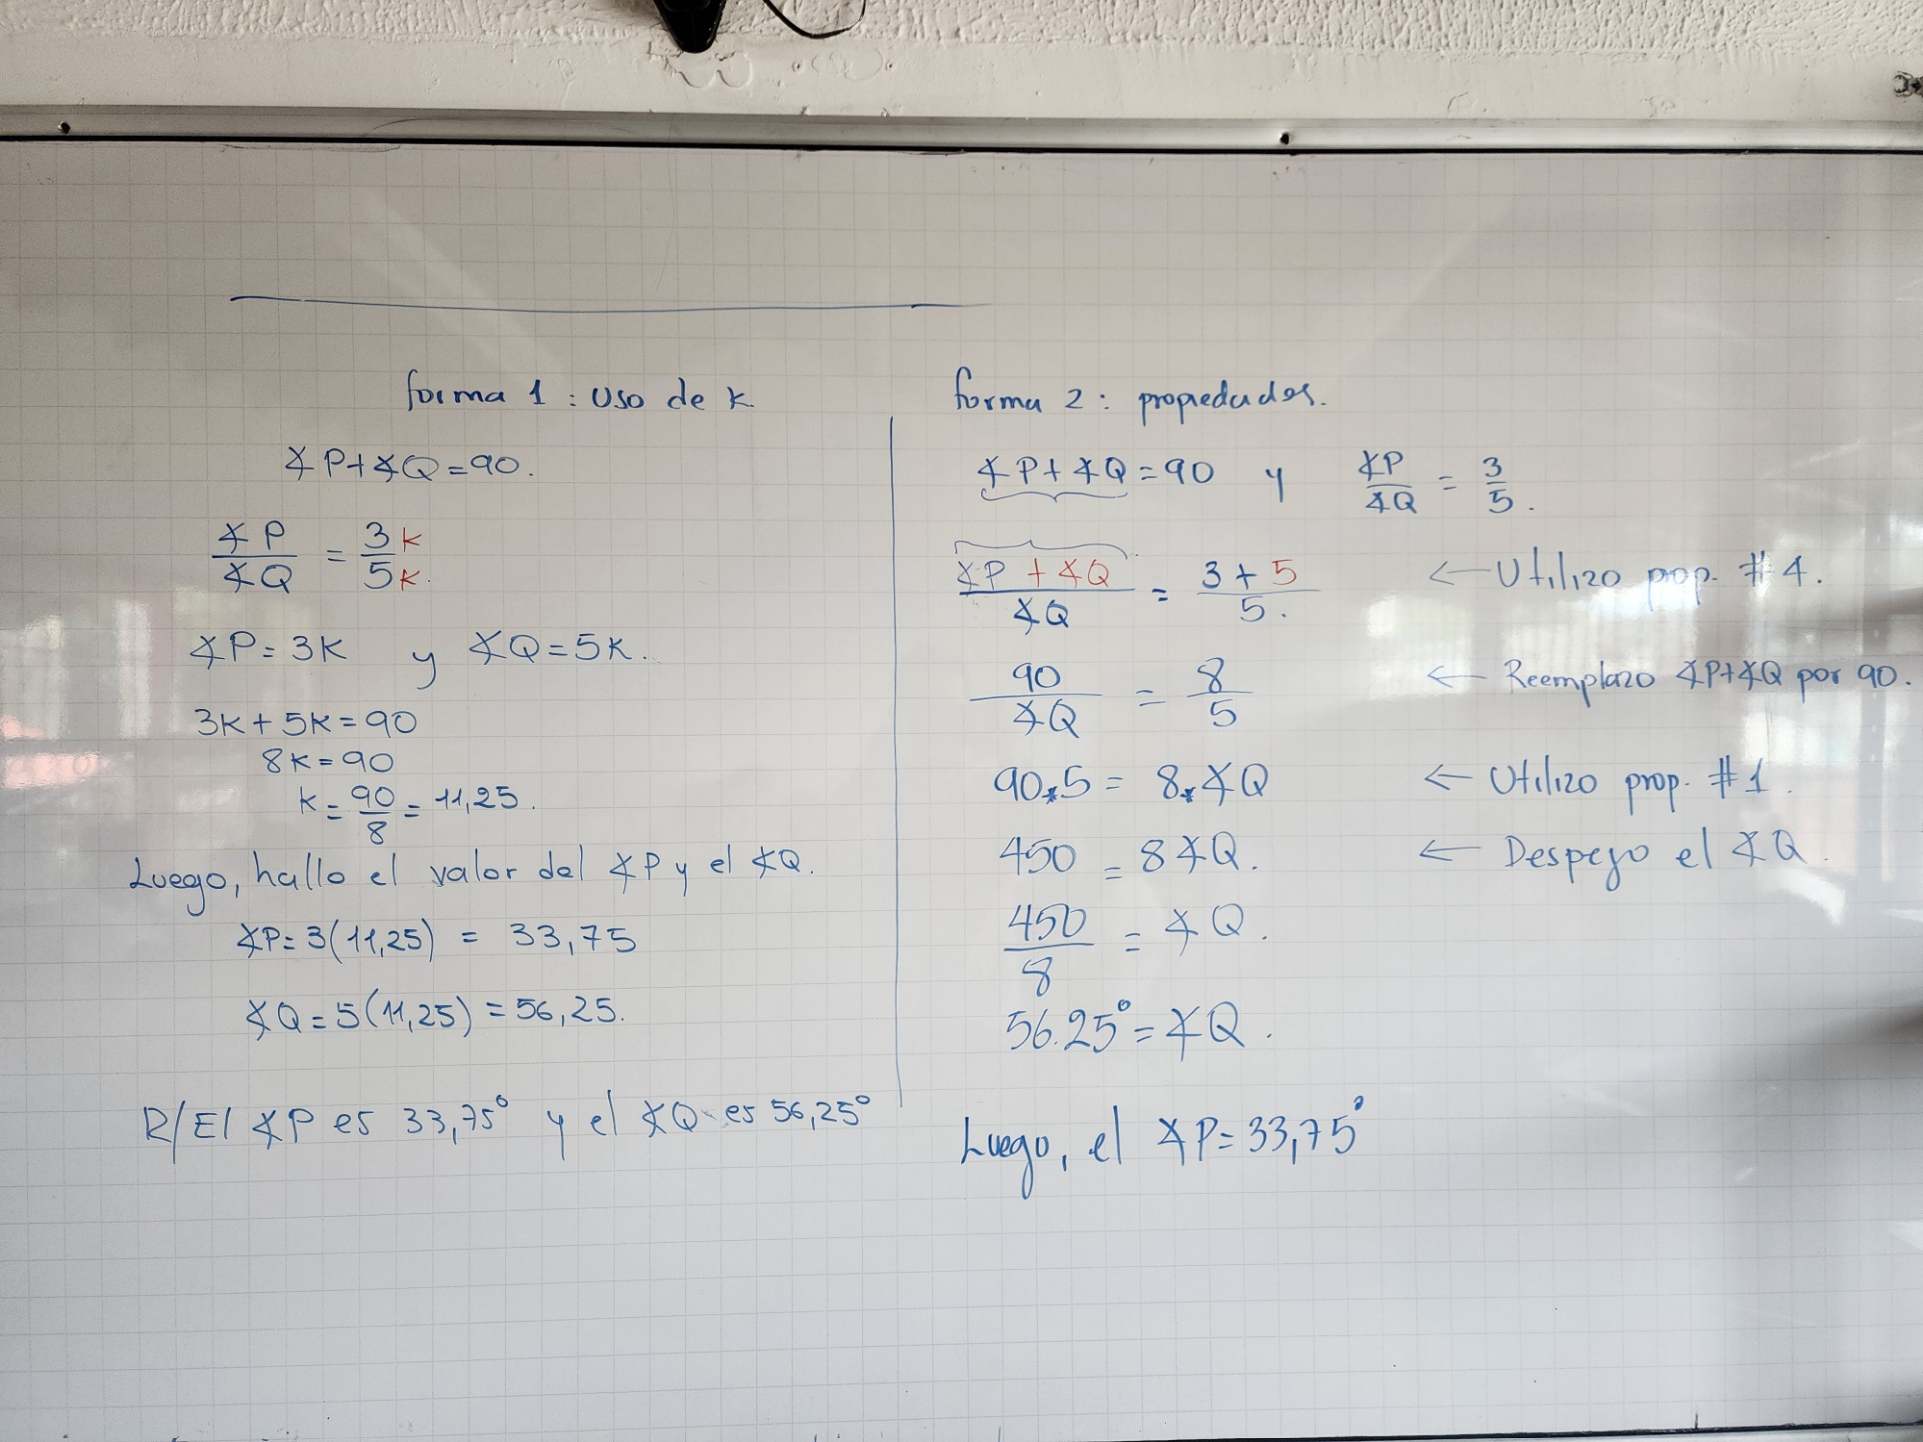 forma 1 : Uso de k
∡P+∡Q=90.
∡P/∡Q = 3k/5k.
∡P=3K y ∡Q=5K.
3K+5K=90
8K=90
K=90/8=11,25.
Luego, hallo el valor del ∡P y el ∡Q.
∡P=3(11,25) = 33,75
∡Q=5(11,25)=56,25.
R/El ∡P es 33,75° y el ∡Q es 56,25°
forma 2: propiedades.
∡P+∡Q=90 y ∡P/∡Q = 3/5.
(∡P+∡Q)/∡Q = (3+5)/5. ← Utilizo prop. #4.
90/∡Q = 8/5 ← Reemplazo ∡P+∡Q por 90.
90*5=8*∡Q ← Utilizo prop. #1.
450=8∡Q. ← Despejo el ∡Q.
450/8=∡Q.
56.25°=∡Q.
Luego, el ∡P=33,75°